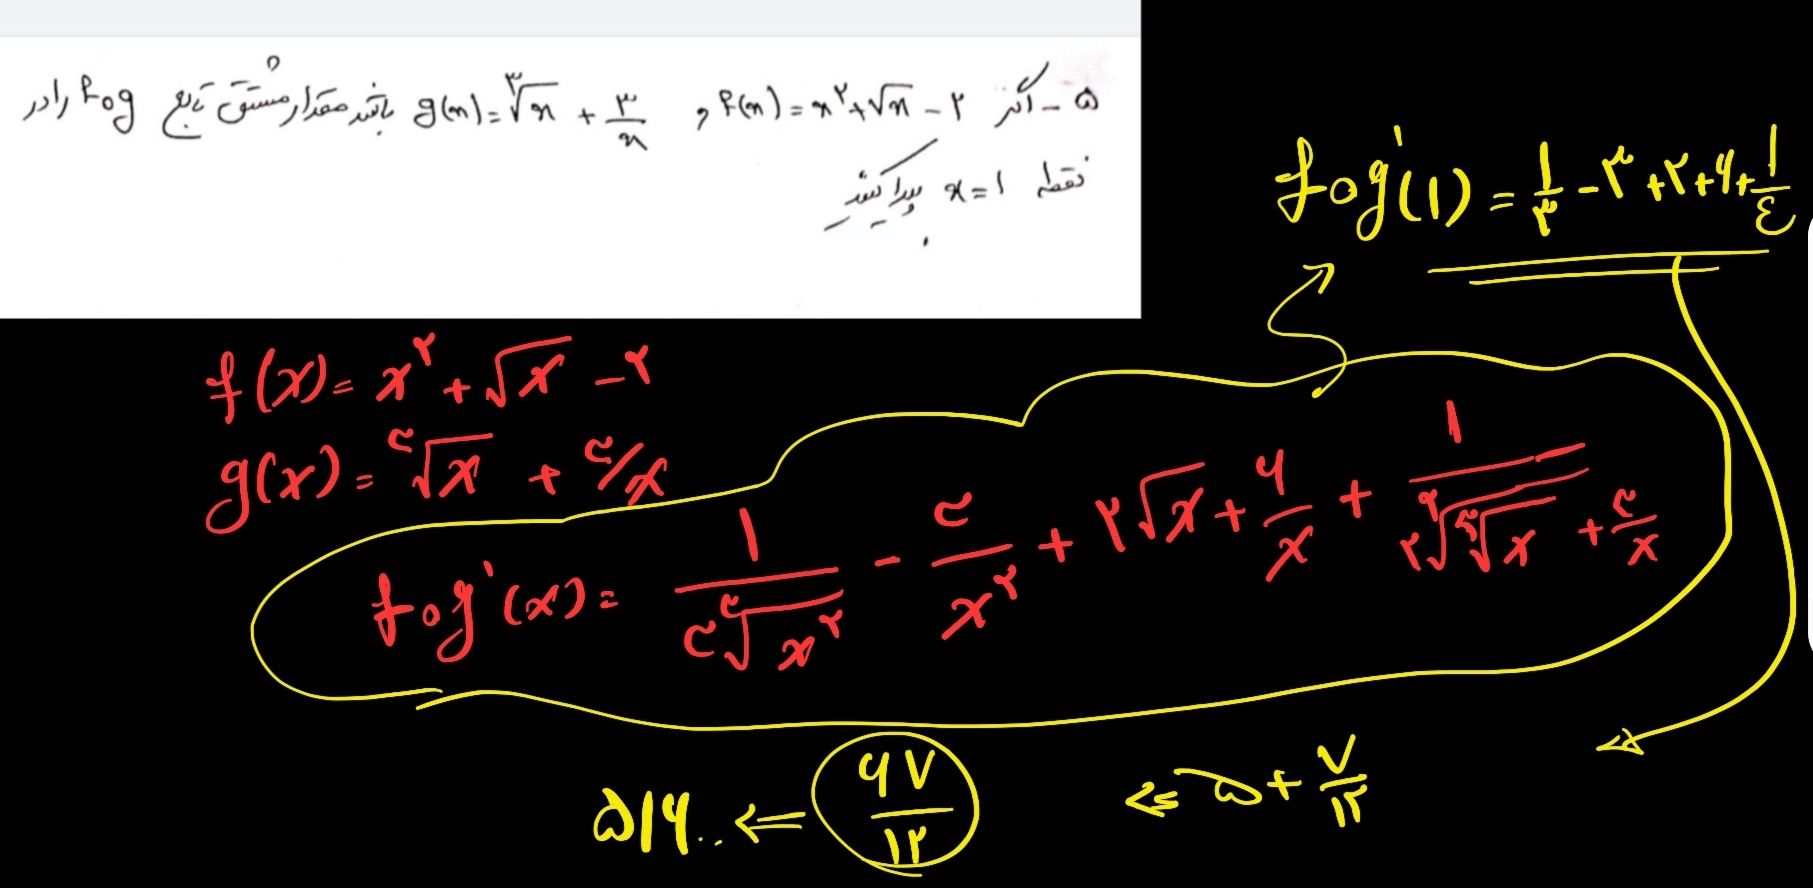 ۵- اگر f(x) = x^۲ + √x - ۲ و g(x) = ∛x + ۳/x باشد مقدار مشتق تابع fog را در
نقطه x = ۱ پیدا کنید
fog'(۱) = ۱/۳ - ۳ + ۲ + ۶ + ۱/۴
f(x) = x^۲ + √x - ۲
g(x) = ∛x + ۳/x
fog'(x) = ۱/(۳∛(x^۲)) - ۳/x^۲ + ۲√x + ۶/x + ۱/(۲√(∛x)) + ۳/x
۵ + ۷/۱۲ ⇐
۵/۶.. ⇐ ۶۷/۱۲